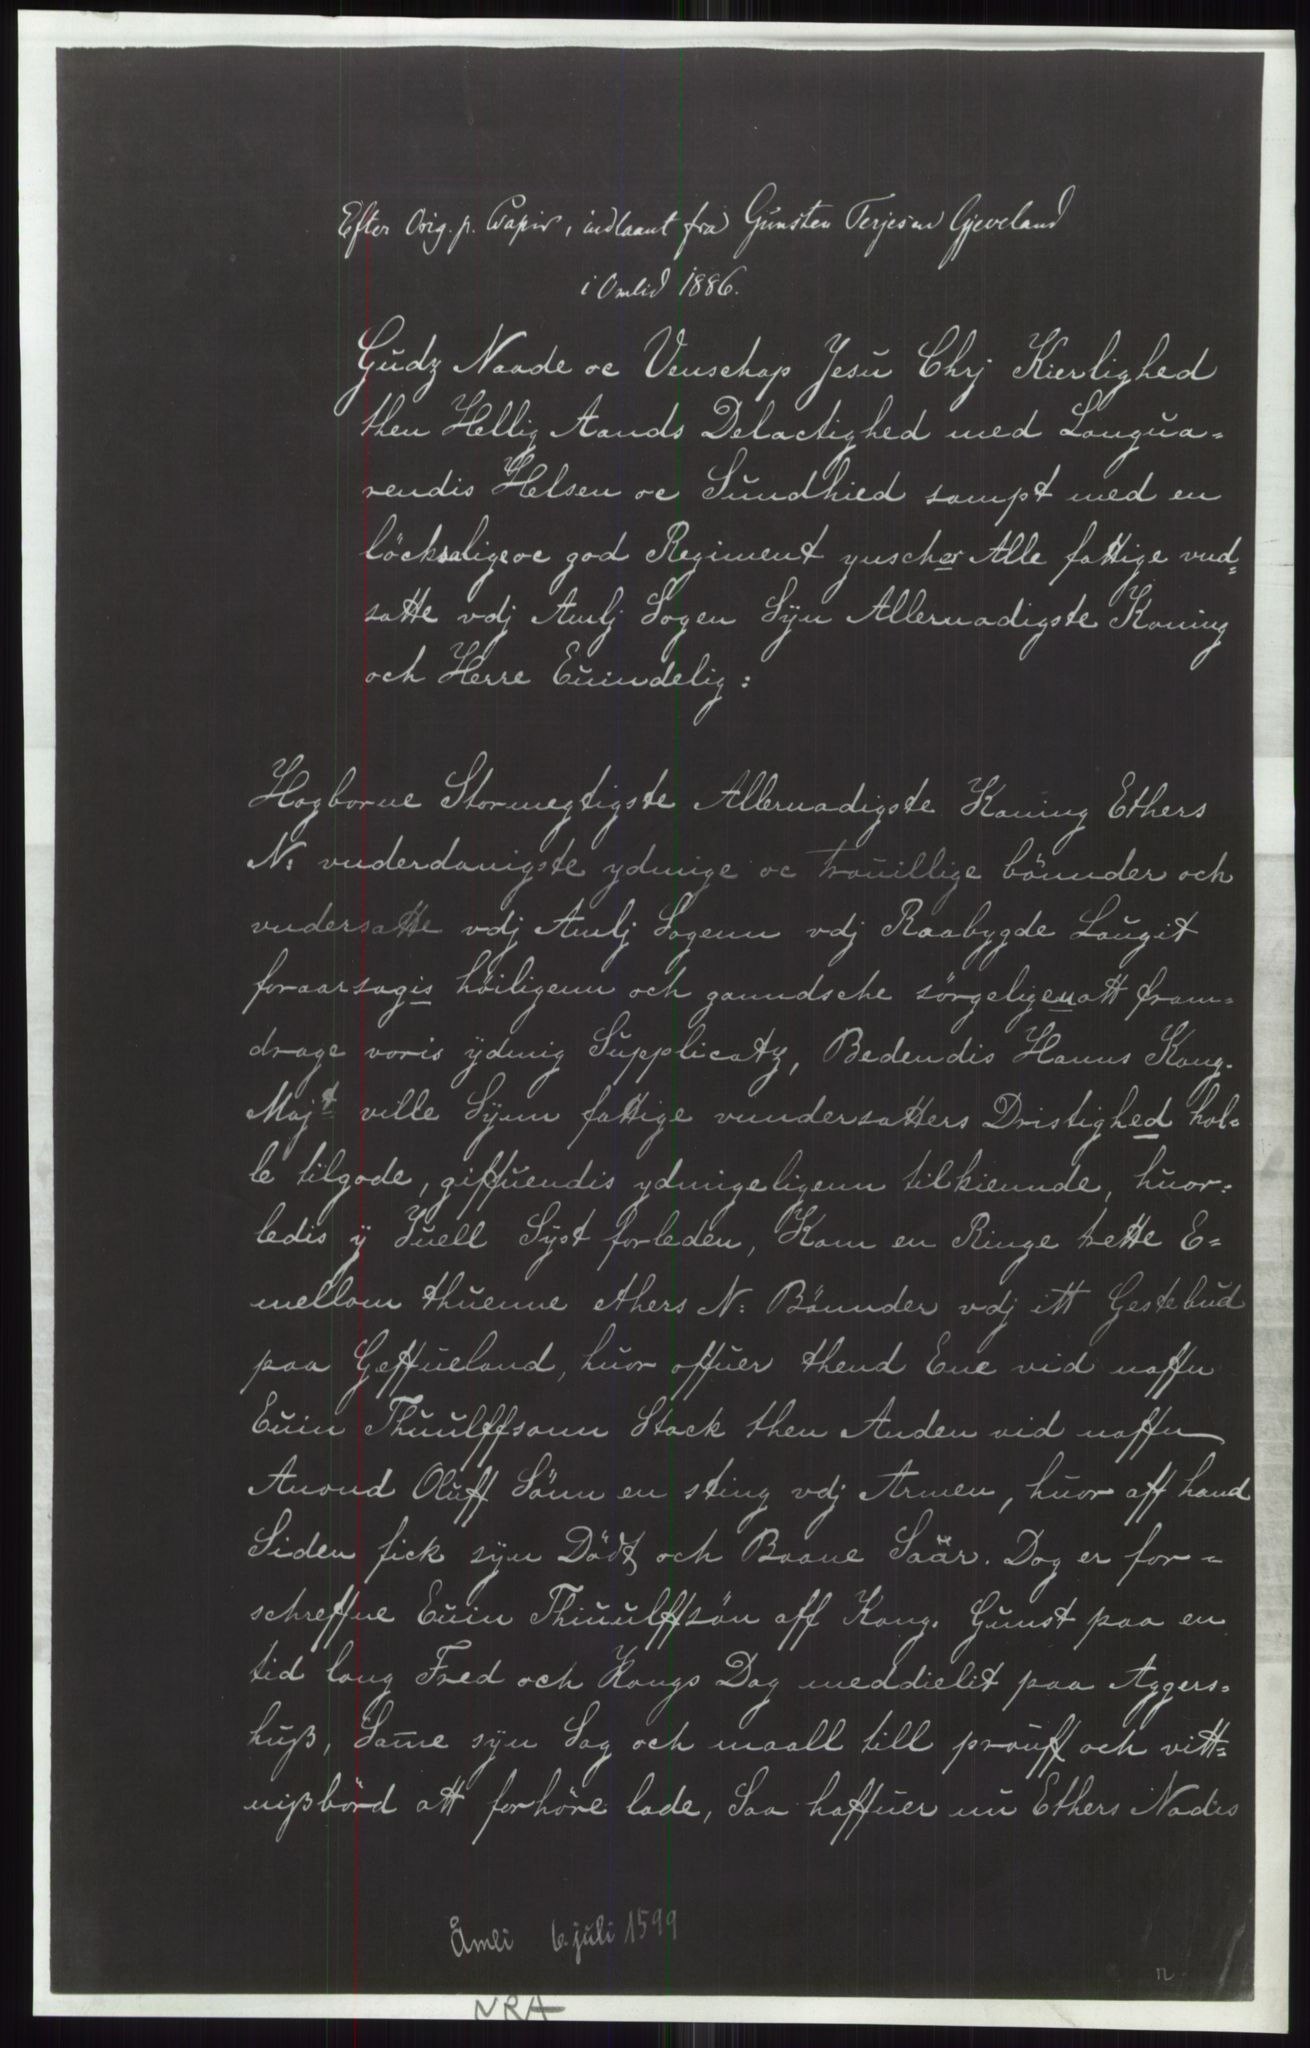 Efter Orig. p. Papir, indlaant fra Gunsten Terjesen Gjeveland
i Omlid 1886.
Gudz Naade oc Venschap Jesu Chrj Kierlighed
then Hellig Aands Delactighed med Langua-
rendis Helsen oc Sundhied sampt med en
löcksalige oc god Regiment ynscher Alle fattige vnd-
satte vdj Amlj Sogen Syn Allernadigste Koning
och Herre Euindelig:
Hogborne Stormegtigste Allernadigste Koning Ethers
N: vnderdanigste ydmige oc trouillige bönnder och
vndersatte vdj Amlj Sogenn vdj Raabygde Laugit
foraarsagis höiligenn och ganndsche sörgeligen att fram-
drage voris ÿdmig Supplicatz, Bedendis Hanns Kong.
Majt ville Sÿnn fattige vnndersatters Dristighed hol-
le tilgode, giffuendis ydmigeligenn tilkiennde, huor-
ledis ÿ Juell Syst forleden, Kom en Ringe trette E-
mellom thuenne ethers N: Bönnder vdj itt Gestebud
paa Geffueland, huor offuer thend Ene vid naffn
Euin Thuulffsonn Stack then Anden vid naffn
Anond Oluff Sönn en sting vdj Armen, huor aff hand
Siden fick sÿn Dödt och Baane Saär. Dog er for-
schreffne Euin Thiuulffsön aff Kong. Gunst paa en
tid lang Fred och Kongs Dag meddielit paa Aggers-
huß, Same sÿn Sag och maall till prouff och vitt-
nißbörd att forhöre lade, Saa haffuer nu Ethers Nadis
Åmli 6. juli 1599
NRA